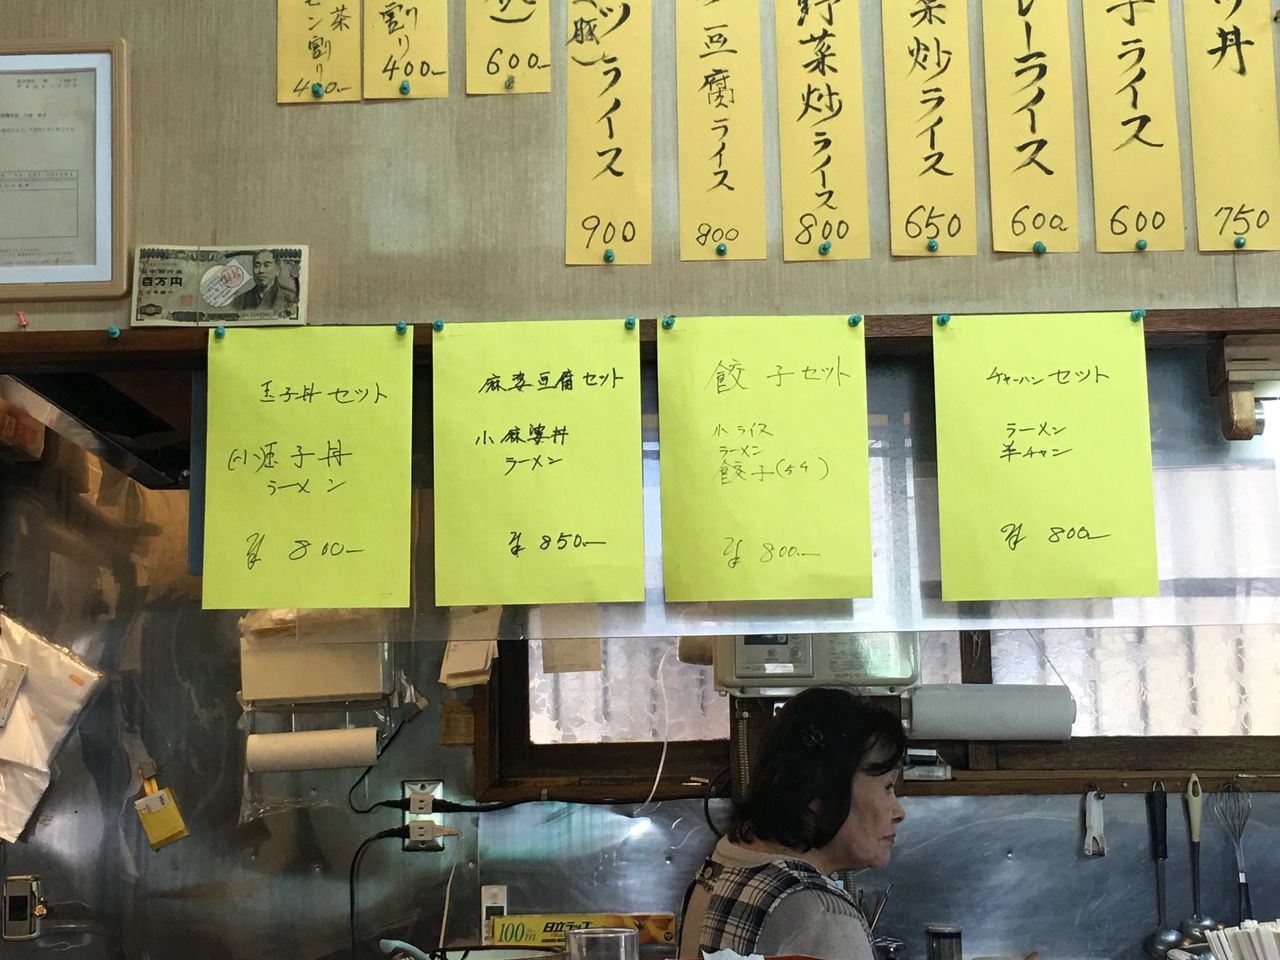 割り
400-
600-
ライス
900
豆腐ライス
900
野菜炒ライス
800
菜炒ライス
650
レーライス
600
子ライス
600
丼
750
百万円
玉子丼セット
(小)玉子丼
ラーメン
¥ 800-
麻婆豆腐セット
小麻婆丼
ラーメン
¥ 850-
餃子セット
小ライス
ラーメン
餃子(5ケ)
¥ 800-
チャーハンセット
ラーメン
半チャン
¥ 800-
100m 日立ラップ